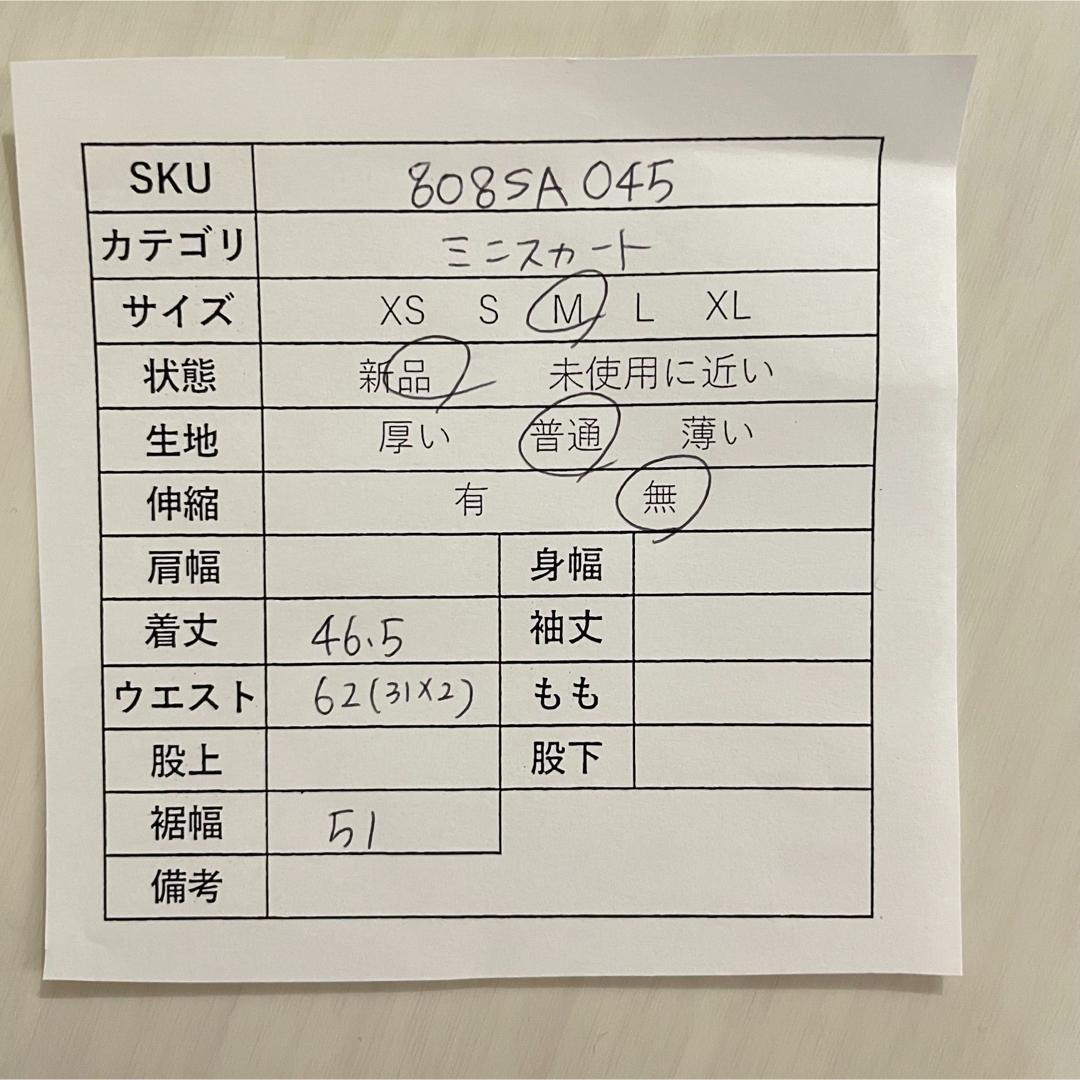 SKU 808SA045
カテゴリ ミニスカート
サイズ XS S M L XL
状態 新品 未使用に近い
生地 厚い 普通 薄い
伸縮 有 無
肩幅 身幅
着丈 46.5 袖丈
ウエスト 62(31×2) もも
股上 股下
裾幅 51
備考